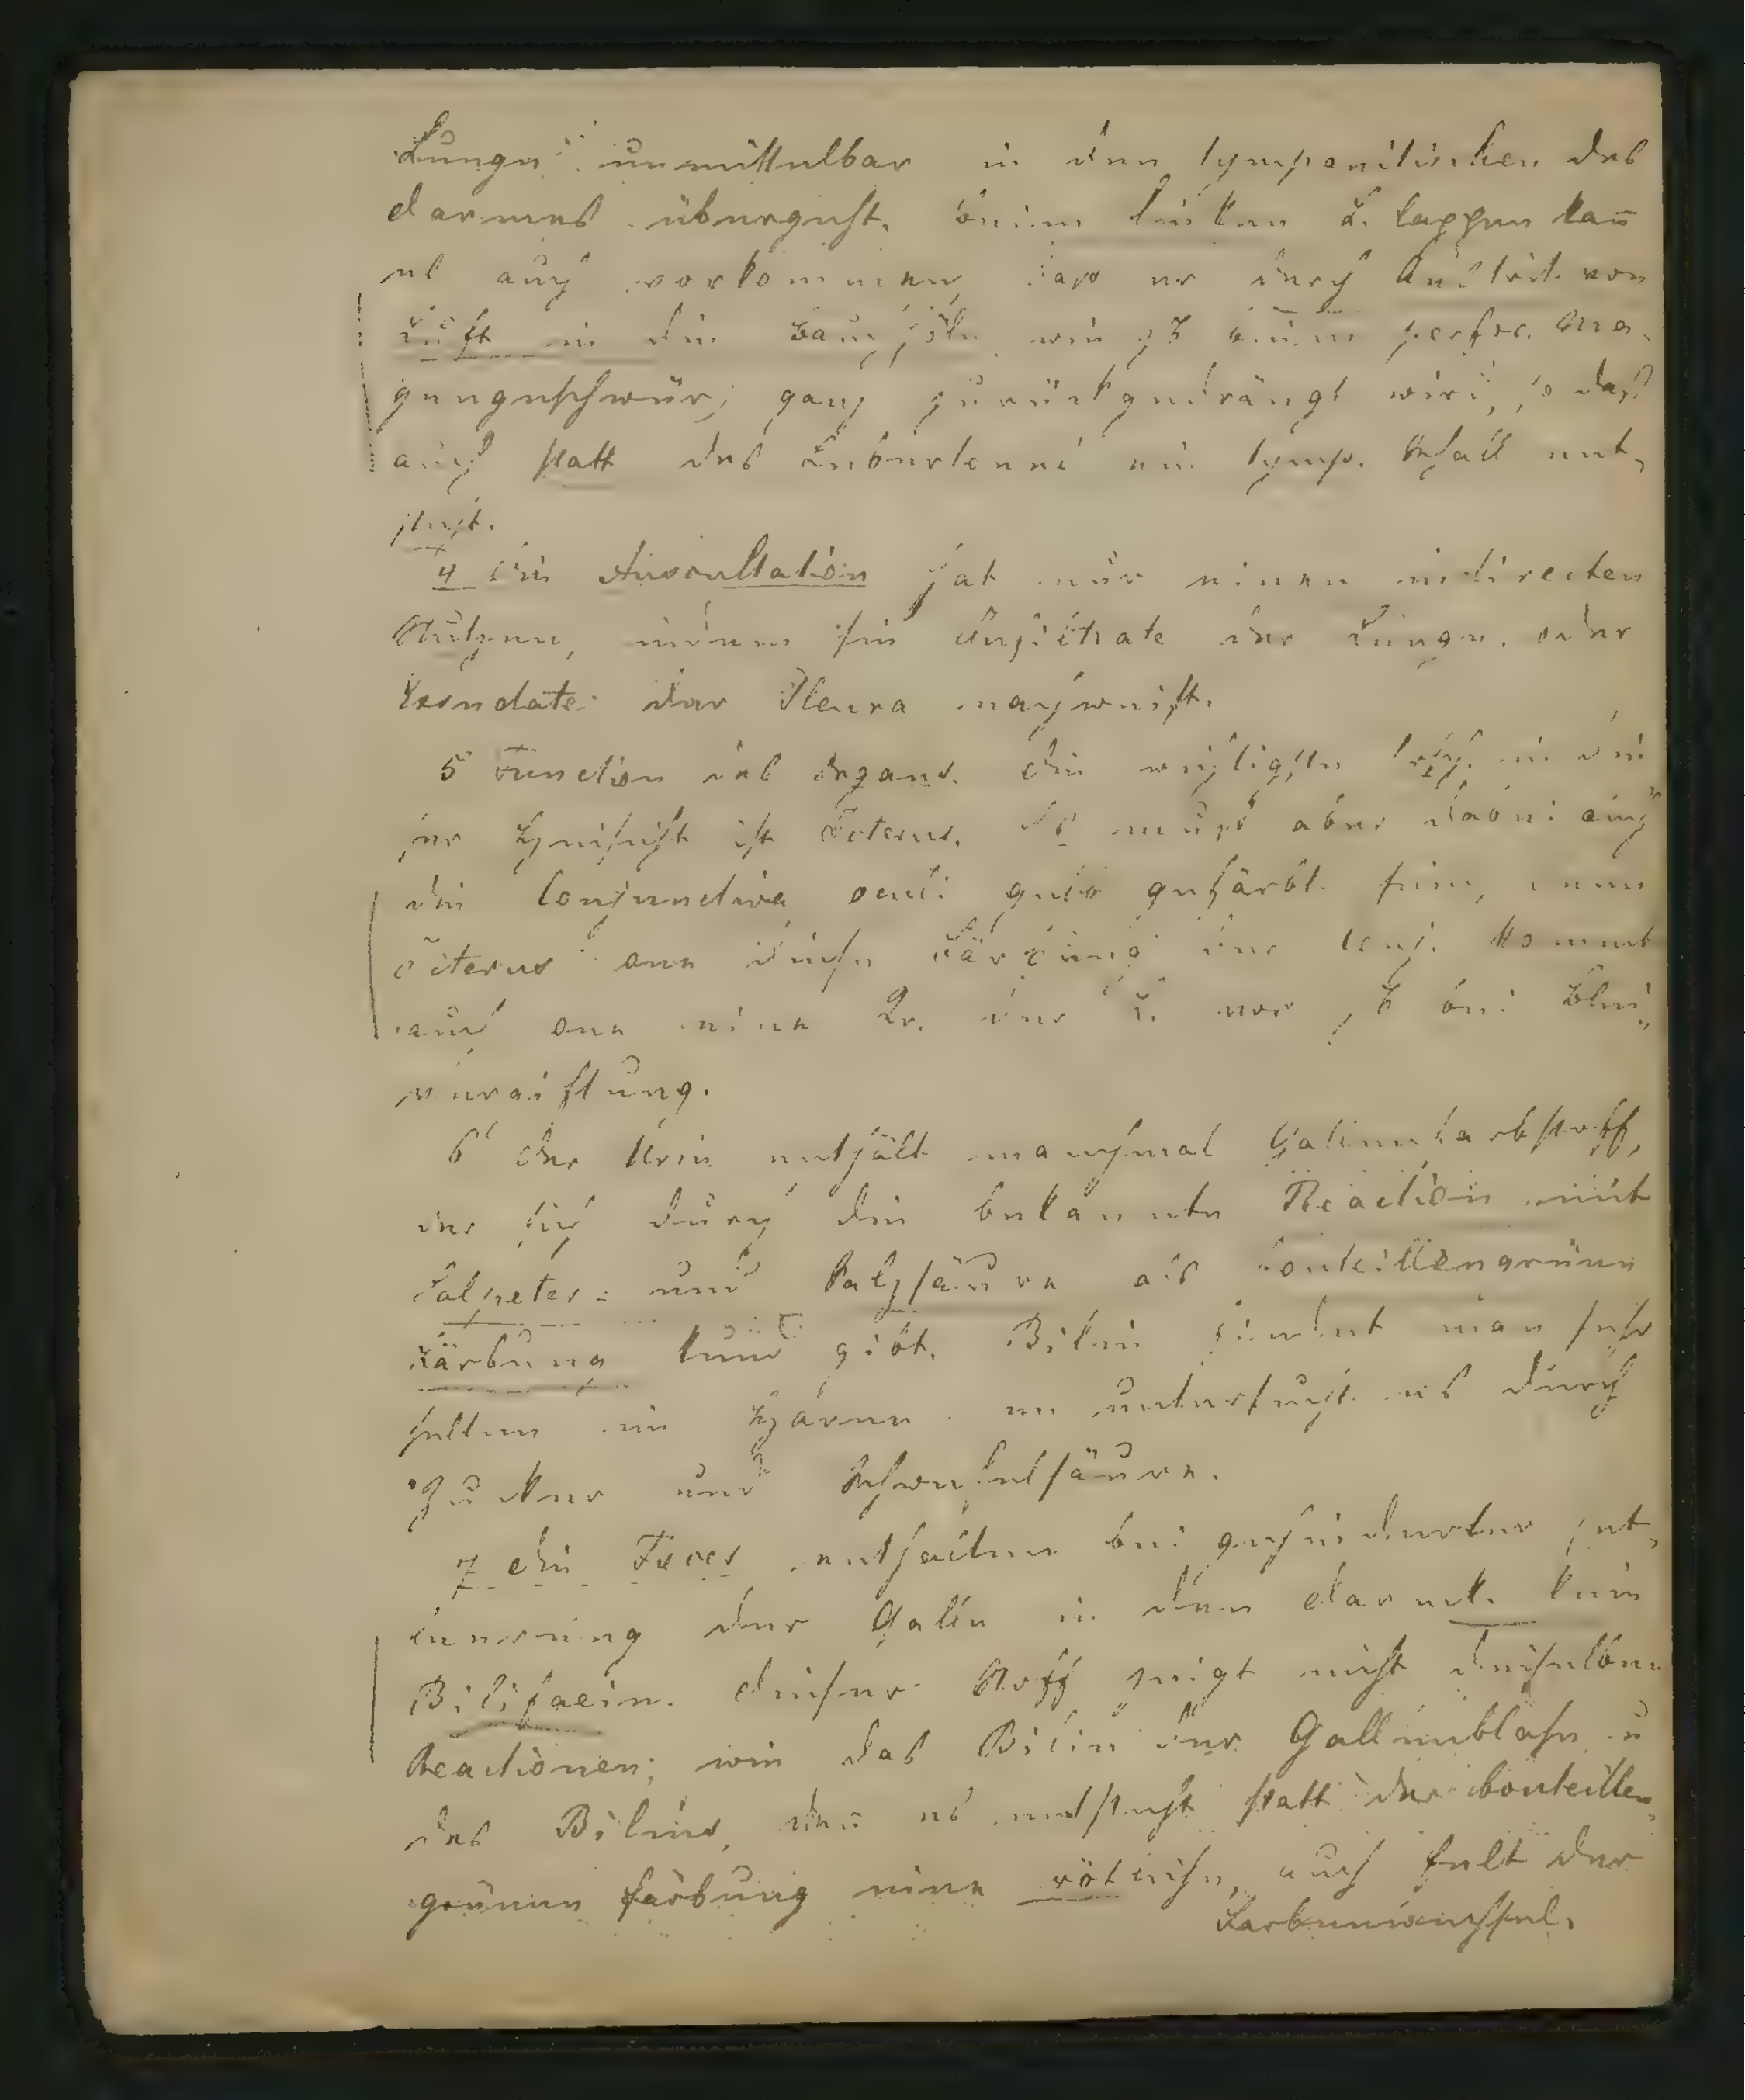 Lunge unmittelbar in den tympanitischen des
Darmes übergeht. Beim linken L. lappen kan̄
es auch vorkommen, dass er durch Austritt von
Luft in die Bauchhöhle wie z B beim perfor. Ma-
gengeschwür, ganz zurückgedrängt wird, so dass
auch statt des Lebertones ein tymp. Schall ent-
steht.
4 Die Auscultation hat nur einen indirecten
Nutzen, indem sie Infiltrate der Lunge oder
Exsudate der Pleura nachweist.
5 Function des Organs. Die wichtigste in die
ser Hinsicht ist Icterus. Es muss aber dabei auch
die Conjunctiva oculi gelb gefärbt sein, denn
Icterus one diese Färbung der Conj. kommt
auch one eine Kr. der L. vor z B bei Blei-
vergiftung.
6 Der Urin enthält manchmal Gallenfarbstoff,
der sich durch die bekannte Reaction mit
Salpeter- und Salzsäure als bouteillengrüne
Färbung kund gibt. Bilin findet man sehr
selten im Harne. untersucht es durch
Zucker und Schwefelsäure.
7 Die Fæces enthalten bei gehinderter
der Galle in den Darm kein
Bilifaein. Dieser Stoff zeigt nicht dieselben
Reactionen, wie das Bilin der Gallenblase u
des Bluts, den̄ es entsteht statt der bouteillen-
grünen färbung eine röthliche, auch felt der
Farbenwechsel.